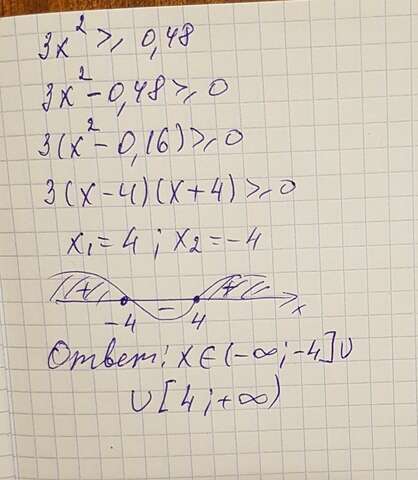 3x² ⩾ 0,48
3x² - 0,48 ⩾ 0
3(x² - 0,16) ⩾ 0
3(x-4)(x+4) ⩾ 0
x₁ = 4 ; x₂ = -4
+ - + x
-4 4
Ответ: x ∈ (-∞; -4] ∪
∪ [4; +∞)